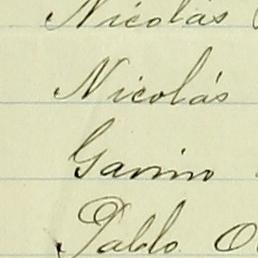 Nicolás
Nicolás
Gavino
Pablo O